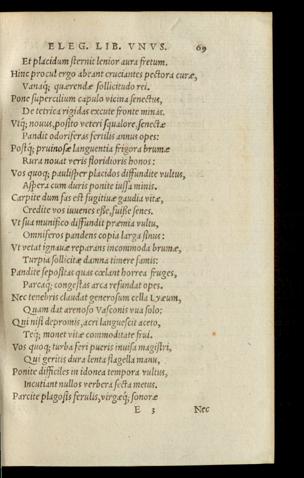 ELEG. LIB. VNVS. 69
Et placidum sternit lenior aura fretum.
Hinc procul ergo abeant cruciantes pectora curæ,
Vanaq; quærendæ sollicitudo rei.
Pone supercilium capulo vicina senectus,
De tetrica rigidas excute fronte minas.
Vtq; nouus, posito veteri squalore, senectæ
Pandit odoriferas fertilis annus opes:
Postq; pruinosæ languentia frigora brumæ
Rura nouat veris floridioris honos:
Vos quoq; paulisper placidos diffundite vultus,
Aspera cum duris ponite iussa minis.
Carpite dum fas est fugitiuæ gaudia vitæ,
Credite vos iuuenes esse, fuisse senes.
Vt sua munifico diffundit præmia vultu,
Omniferos pandens copia larga sinus:
Vt vetat ignauæ reparans incommoda brumæ,
Turpia sollicitæ damna timere famis:
Pandite sepositas quas cœlant horrea fruges,
Parcaq; congestas arca refundat opes.
Nec tenebris claudat generosum cella Lyæum,
Quam dat arenoso Vasconis vua solo:
Qui nisi depromis, acri languescit aceto,
Teq; monet vitæ commoditate frui.
Vos quoq; turba feri pueris inuisa magistri,
Qui geritis dura lenta flagella manu,
Ponite difficiles in idonea tempora vultus,
Incutiant nullos verbera secta metus.
Parcite plagosis ferulis, virgæq; sonoræ
E 3 Nec